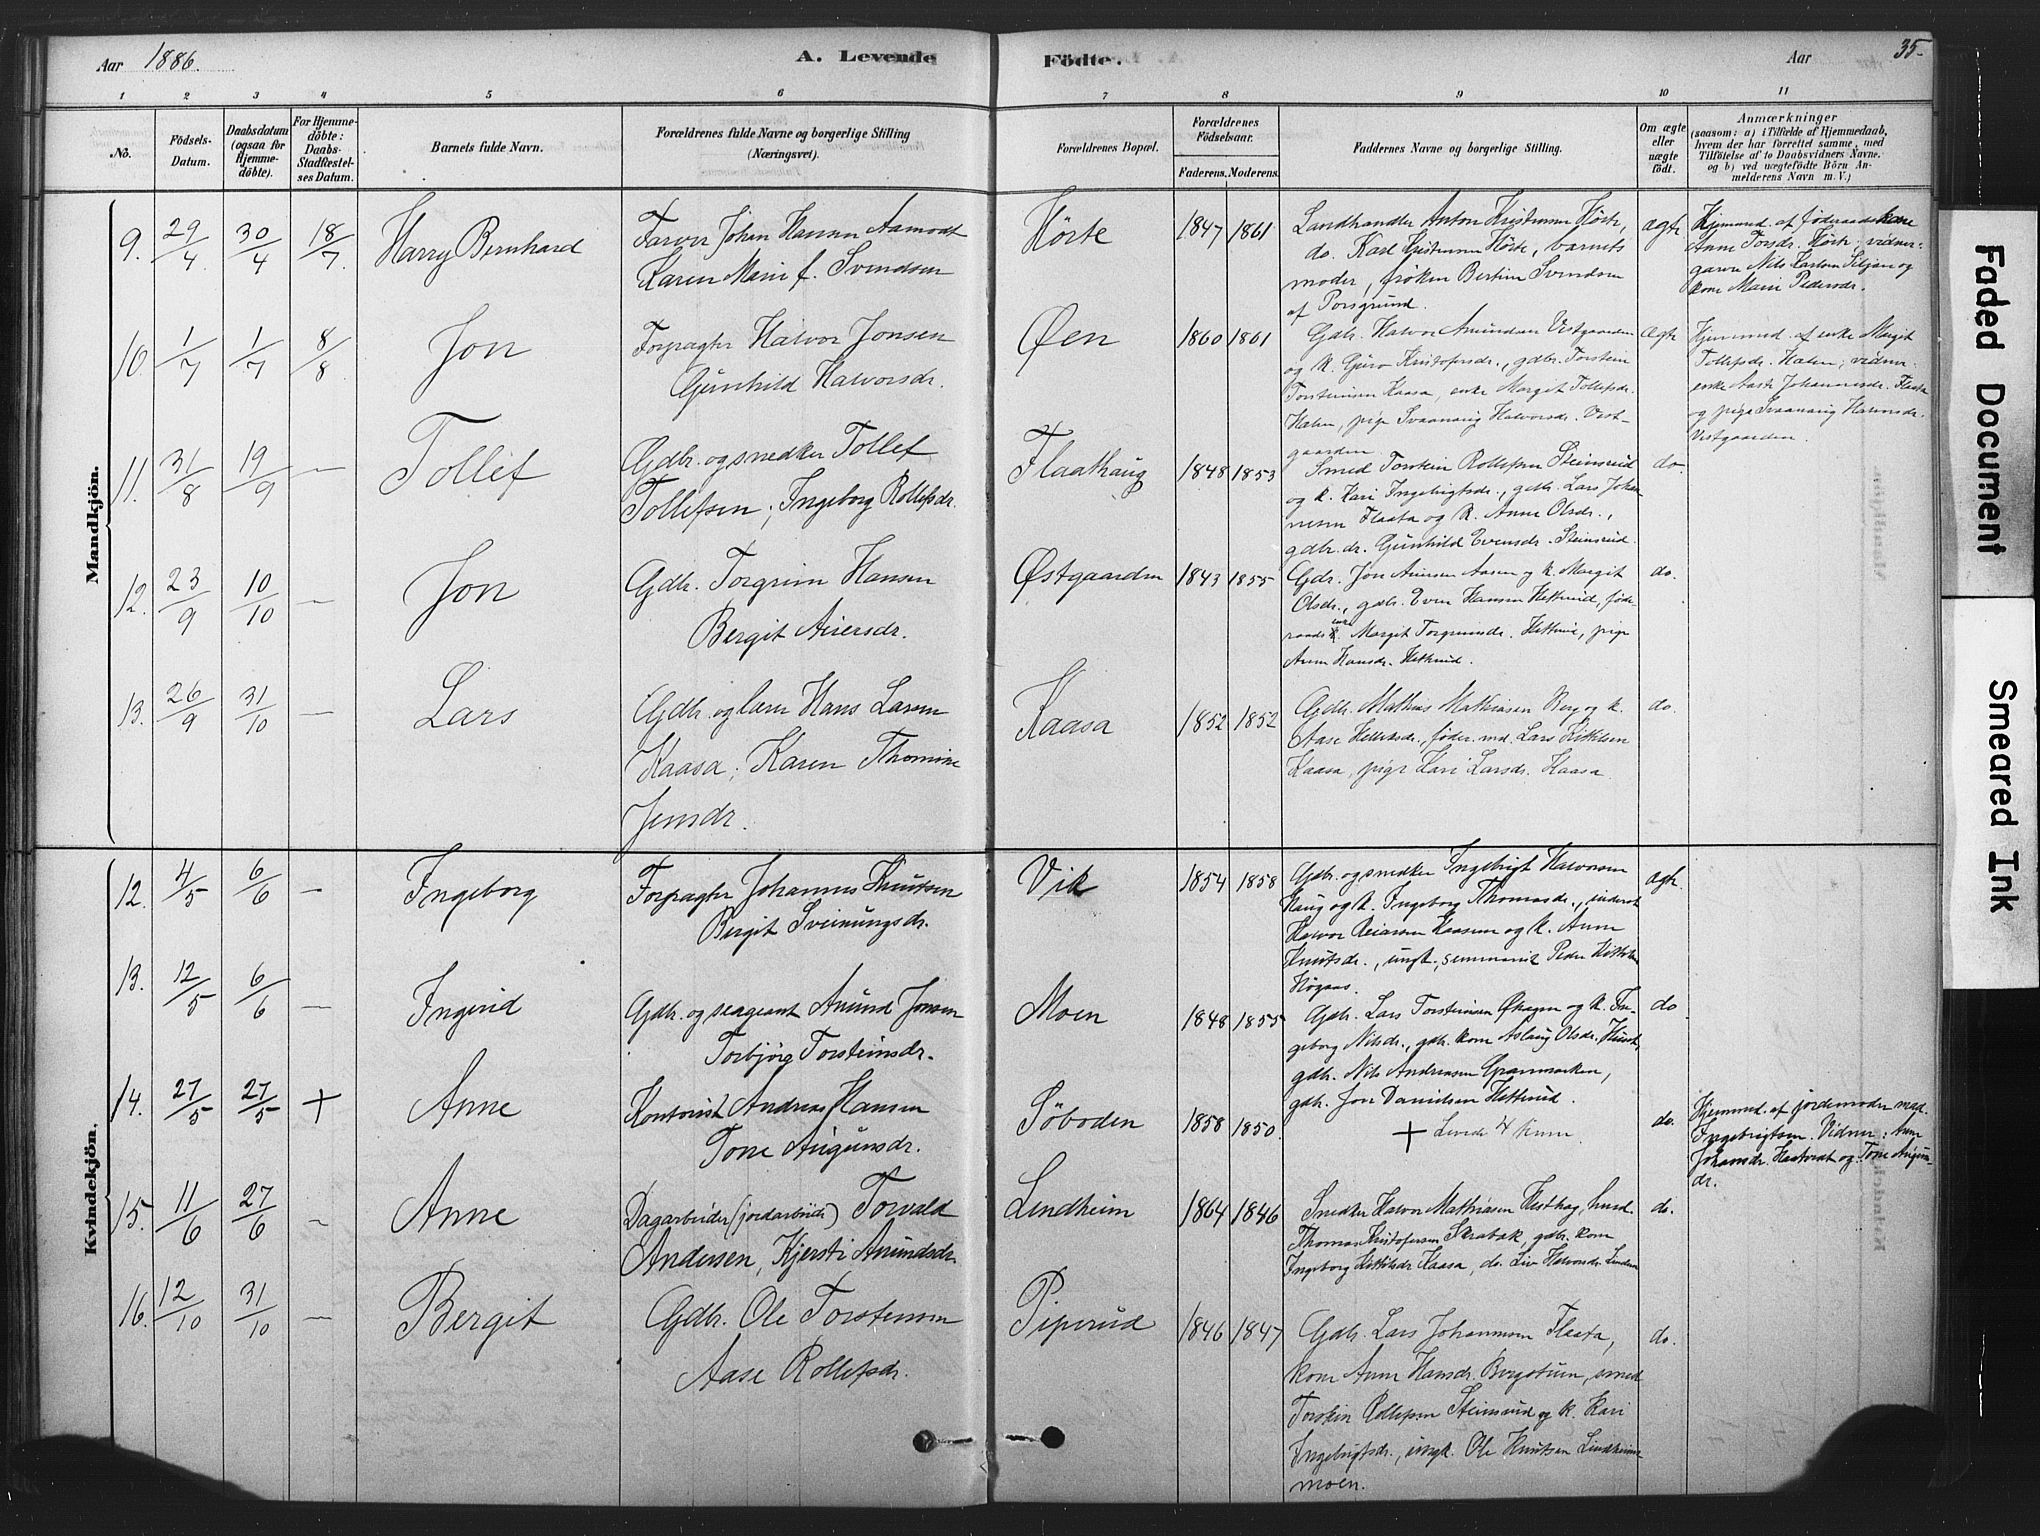 Aar 1886.
A. Levende
Födte.
Aar
35.
1 2 3 4 5 6 7 8 9 10 11
No.
Födsels-
Datum.
Daabsdatum
(ogsaa for
Hjemme-
döbte).
For Hjemme-
döbte:
Daabs-
Stadfæstel-
ses Datum.
Barnets fulde Navn.
Forældrenes fulde Navne og borgerlige Stilling
(Næringsvei).
Forældrenes Bopæl.
Forældrenes
Födselsaar.
Faderens. Moderens.
Faddernes Navne og borgerlige Stilling.
Om ægte
eller
uægte
födt.
Anmærkninger
(saasom: a) i Tilfælde af Hjemmedaab,
hvem der har forrettet samme, med
Tilföielse af to Daabsvidners Navne.
og b) ved uægtefödte Börn An-
melderens Navn m. V.)
Mandkjön.
9. 29/4 30/4 18/7. Harry Bernhard
Farver Johan Hansen Aamodt
Karen Marie f. Svendsen
Hörte 1847 1861
Landhandler Anton Kristensen Hörte,
do. Karl Kristensen Hörte, barnets
moder, frøken Bertine Svendsen
af Porsgrund.
ægte
Hjemmed. af føderaadskone
Anne Torsdr. Hörte; vidner:
garver Nils Larsen Siljan og
kone Marie Pedersdr.
10. 1/7 1/7 8/8 Jon
Forpagter Halvor Jonsen
Gunhild Halvorsdr.
Øen 1860 1861
Gdbr. Halvor Amundsen Vestgaarden
og k. Guro Kristofersdr., gdbr. Torstein
Torsteinsen Kaasa, enke Margit Tollefsdr.
Halen, pige Svaanaug Halvorsdr. Vest-
gaarden
ægte
Hjemmed. af enke Margit
Tollefsdr. Halen; vidner:
enke Aaste Johannesdr. Flaata
og pige Svaanaug Halvorsdr.
Vestgaarden.
11. 31/8 19/9 — Tollef
Gdbr. og snedker Tollef
Tollefsen; Ingeborg Rollefsdr.
Flaathaug 1848 1853
Smed Torstein Rollefsen Steinsrud
og k. Kari Ingebrigtsdr., gdbr. Lars Johan-
nesen Flaata og k. Anne Olsdr.,
gdbr. dr. Gunhild Evensdr. Steinsrud.
do.
12. 23/9 10/10 — Jon
Gdbr. Torgrim Hansen
Bergit Aviersdr.
Østgaarden 1843 1855
Gdr. Jon Aviersen Aasen og k. Margit
Olsdr., gdbr. Even Hansen Hetterud, føde-
raadsenke Margit Torgrimsdr. Hetterud, pige
Anne Hansdr. Hetterud.
do.
13. 26/9 31/10 — Lars
Gdbr. og lærer Hans Larsen
Kaasa; Karen Thomine
Jensdr.
Kaasa 1852 1852
Gdbr. Mathias Mathiasen Berg og k.
Aase Helleksdr., føder. md. Lars Kittilsen
Kaasa, pige Kari Larsdr. Kaasa.
do.
Kvindekjön.
12. 4/5 6/6 — Ingeborg
Forpagter Johannes Knutsen
Bergit Sveinungsdr.
Vik 1854 1858
Gdbr. og snedker Ingebrigt Halvorsen
Haug og k. Ingeborg Thomasdr., inderst
Halvor Reiarsen Kaasene og k. Anne
Knutsdr., ungk., seminarist Peder Kittilsen
Högaas.
ægte.
13. 12/5 6/6 — Ingerid
Gdbr. og seageant Amund Jonsen
Torbjörg Torsteinsdr.
Moen 1848 1855
Gdbr. Lars Torsteinsen Øhagen og k. In-
geborg Nilsdr., gdb. kone Aslaug Olsdr.
gdbr. Nils Andreassen Granmarken,
gdbr. Jore Danielsen Hetterud.
do
14. 27/5 27/5 + Anne
Kontorist Andreas Hansen
Tone Augunsdr.
Söboden 1858 1850.
+ Levede 4 timer.
do.
Hjemmed. af jordemoder mad.
Ingebrigtsen. Vidner: Anne
Johansdr. og Tone Augun-
dr.
15. 11/6 27/6 — Anne
Dagarbeider (jordarbeider) Torvald
Andersen, Kjersti Amundsdr.
Lindheim 1864 1846
Snedker Halvor Mathiasen Hesthag, husd.
Thomas Kristofersen Skrabak, gdbr. kone
Ingeborg Kittilsdr Kaasa, do. Liv Halvorsdr. Lindem
do.
16. 12/10 31/10 — Bergit
Gdbr. Ole Torstensen
Aase Rollefsdr.
Piperud 1846 1847
Gdbr. Lars Johannesen Flaata,
kone Anne Hansdr. Bergstuen, smed
Torstein Rollefsen Steinsrud og k. Kari
Ingebrigtsdr., ungk. Ole Knutsen Lindheims-
moen.
do.
Faded Document
Smeared Ink